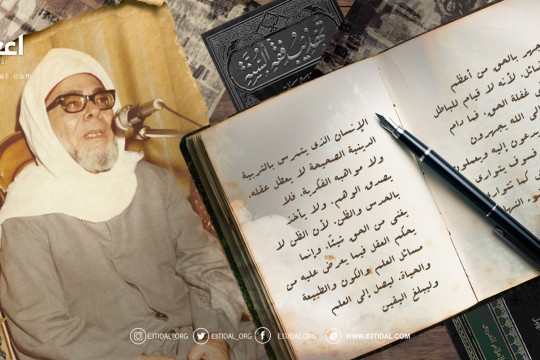 تهذيب فقه السنة
جهر بالحق من أعظم
لأنه لا قيام للباطل
غفلة الحق، فما دام
إلى الله يجهرون
يدعون إليه ويعملون
سوف يتوارى
كما تتوارى
الإنسان الذي يتمرس بالتربية
الدينية الصحيحة لا يعطل عقله
ولا مواهبه الفكرية، فلا
يصدق الوهم، ولا يأخذ
بالحدس والظن، لأن الظن لا
يغني من الحق شيئًا، وإنما
يحكم العقل فيما يعرض عليه من
مسائل العلم والكون والطبيعة
والحياة، ليصل إلى العلم
وليبلغ اليقين
ESTIDAL_ORG ESTIDAL_ORG ESTIDAL.ORG WWW.ESTIDAL.COM